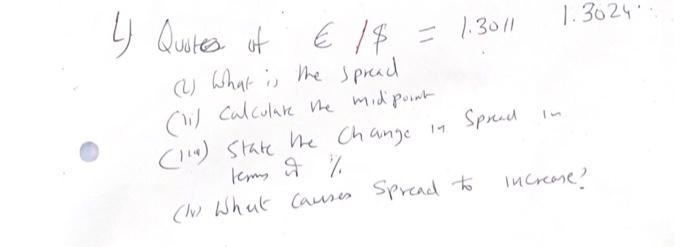 4) Quotes of € /$ = 1.3011 1.3024
(i) What is the spread
(ii) Calculate the midpoint
(iii) State the change in Spread in
terms of %
(iv) What causes Spread to increase?